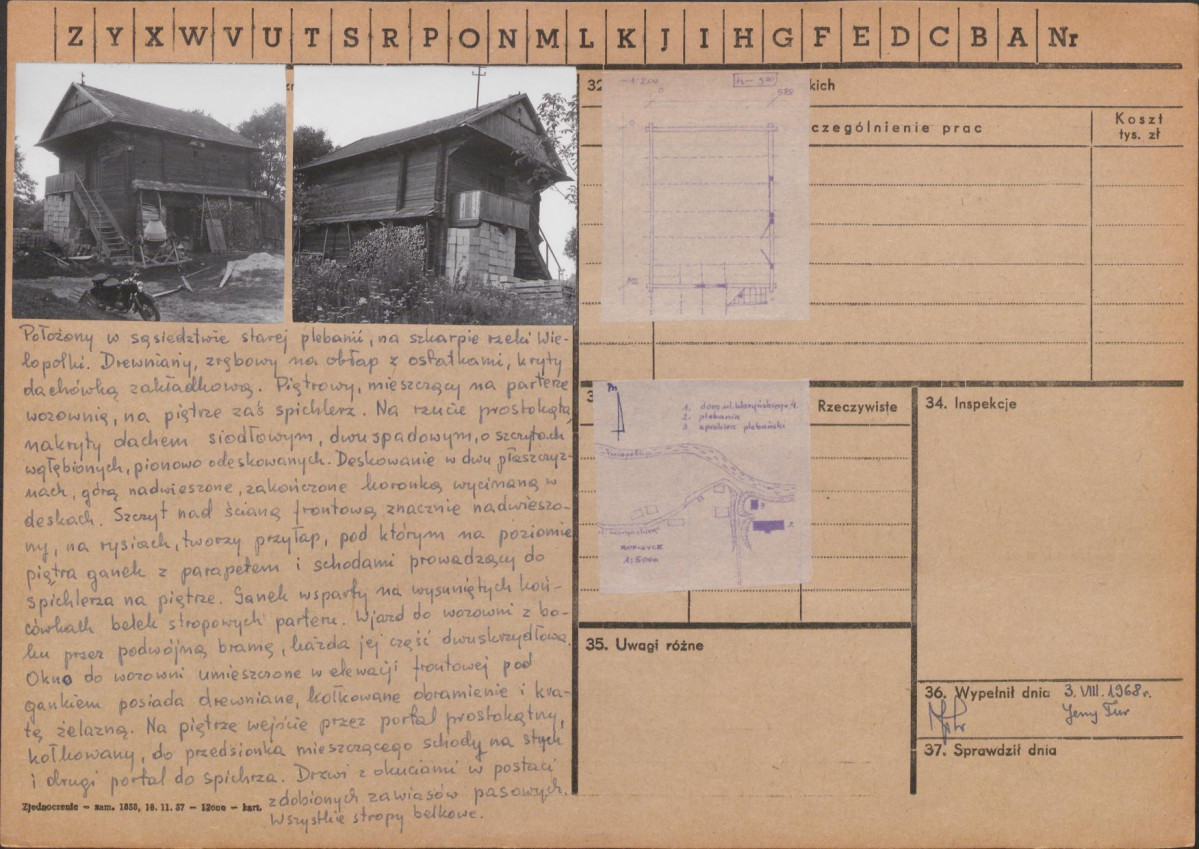 Z Y X W V U T S R P O N M L K J I H G F E D C B A Nr
32
kich
czególnienie prac
Koszt
tys. zł
1:200
0
580
0
Położony w sąsiedztwie starej plebanii, na szkarpie rzeki Wie-
lopolki. Drewniany, zrębowy na obłap z ostatkami, kryty
dachówką zakładkową. Piętrowy, mieszczący na parterze
wozownię, na piętrze zaś spichlerz. Na rzucie prostokąta,
nakryty dachem siodłowym, dwuspadowym, o szczytach
wgłębionych, pionowo odeskowanych. Deskowanie w dwu płaszczyz-
nach, górą nadwieszone, zakończone koronką wycinaną w
deskach. Szczyt nad ścianą frontową znacznie nadwieszo-
ny, na rysiach, tworzy przyłap, pod którym na poziomie
piętra ganek z parapetem i schodami prowadzący do
spichlerza na piętrze. Ganek wsparty na wysuniętych koń-
cówkach belek stropowych parteru. Wjazd do wozowni z bo-
ku przez podwójną bramę, każda jej część dwuskrzydłowa.
Okno do wozowni umieszczone w elewacji frontowej pod
gankiem posiada drewniane, kołkowane obramienie i kra-
tę żelazną. Na piętrze wejście przez portal prostokątny,
kołkowany, do przedsionka mieszczącego schody na strych
i drugi portal do spichrza. Drzwi z okuciami w postaci
zdobionych zawiasów pasowych.
Wszystkie stropy belkowe.
Zjednoczenie – zam. 1850, 16. 11. 57 – 12000 – kart.
3
Rzeczywiste
1.
2. plebania
3. spichlerz plebański
ROPCZYCE
1:5000
34. Inspekcje
35. Uwagi różne
36. Wypełnił dnia 3. VIII. 1968 r.
Jerzy Tur
37. Sprawdził dnia